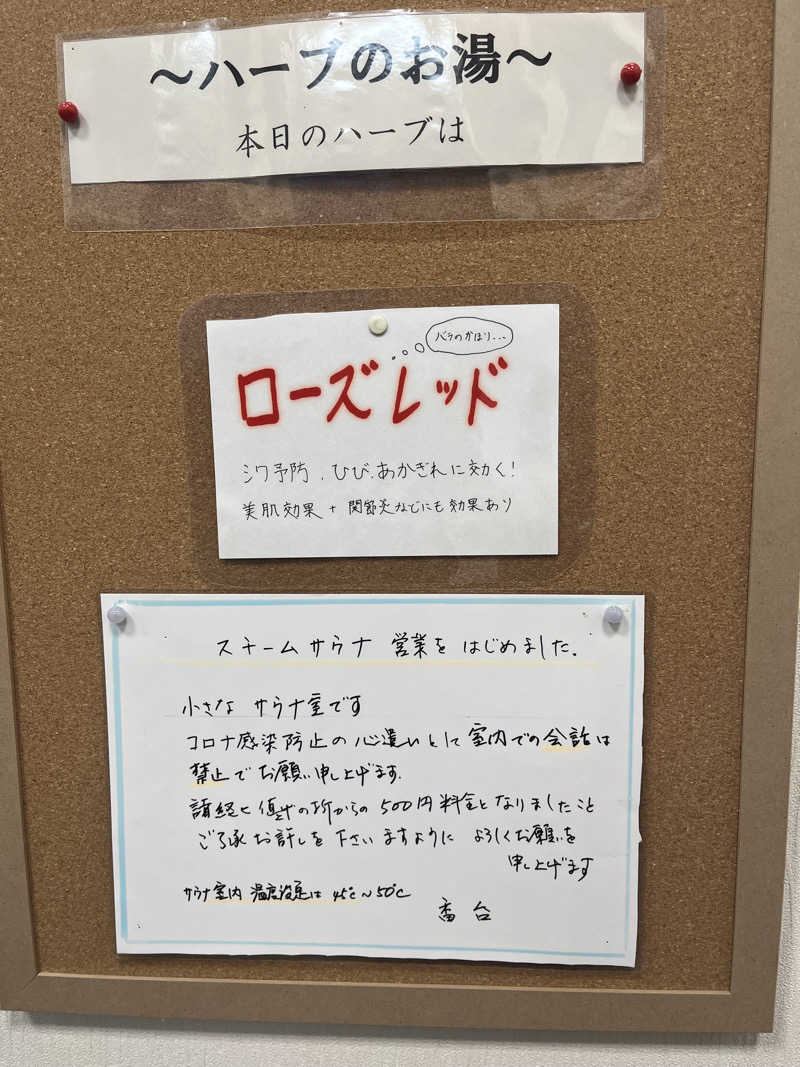 ～ハーブのお湯～
本日のハーブは
バラのかほり...
ローズレッド
シワ予防、ひび、あかぎれに効く!
美肌効果 + 関節炎などにも効果あり
スチームサウナ 営業をはじめました.
小さな サウナ室です
コロナ感染防止の心遣いとして室内での会話は
禁止でお願い申し上げます.
諸経ヒ の所からの 500円料金となりましたこと
ご了承お許しを下さいますように よろしくお願いを
申し上げます
サウナ室内 温度設定は 45℃～50℃
番台